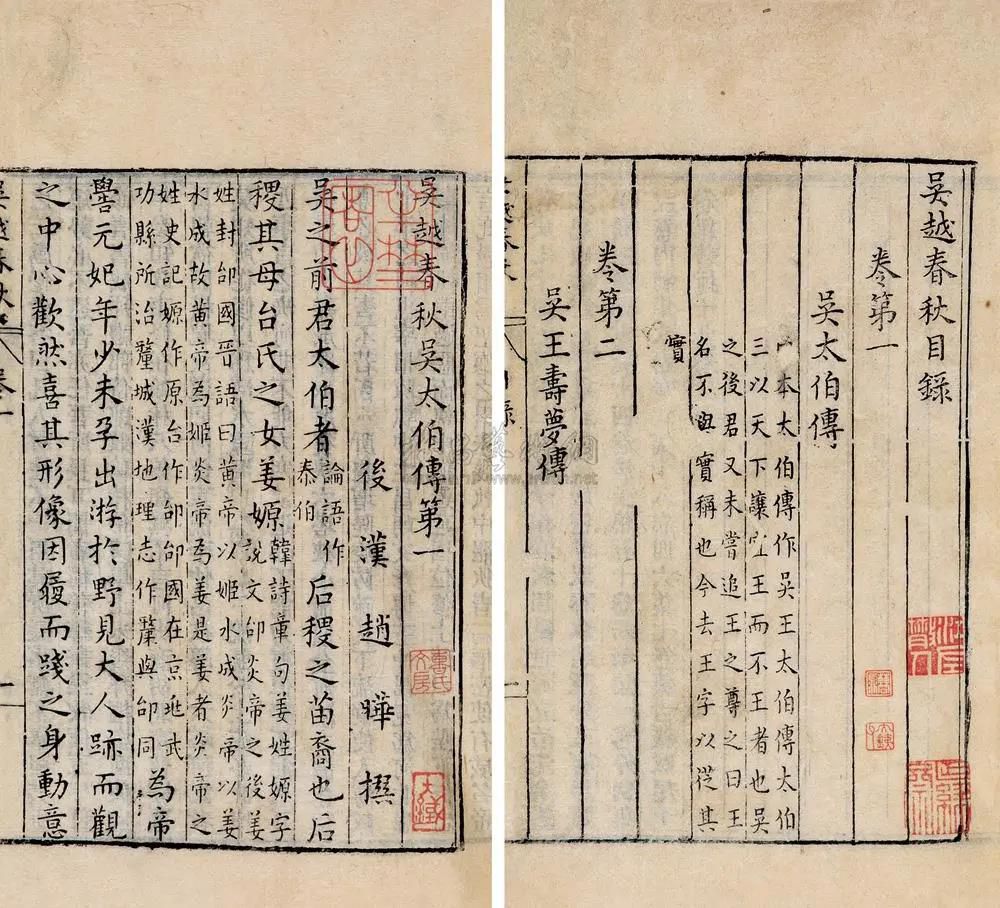 吳越春秋目錄
卷第一
吳太伯傳
一本太伯傳作吳王太伯傳太伯
三以天下讓宜王而不王者也吳
之後君又未嘗追王之尊之曰王
名不與實稱也今去王字以從其
實
卷第二
吳王壽夢傳
吳越春秋吳太伯傳第一
後漢趙曄撰
吳之前君太伯者論語作泰伯后稷之苗裔也后
稷其母台氏之女姜嫄韓詩章句姜姓嫄字說文邰炎帝之後姜
姓封邰國晉語曰黃帝以姬水成炎帝以姜水成故黃帝為姬炎帝為姜是姜者炎帝之
姓史記嫄作原台作邰邰國在京兆武功縣所治釐城漢地理志作斄與邰同為帝
嚳元妃年少未孕出游於野見大人跡而觀
之中心歡然喜其形像因履而踐之身動意
吳越春秋 卷一